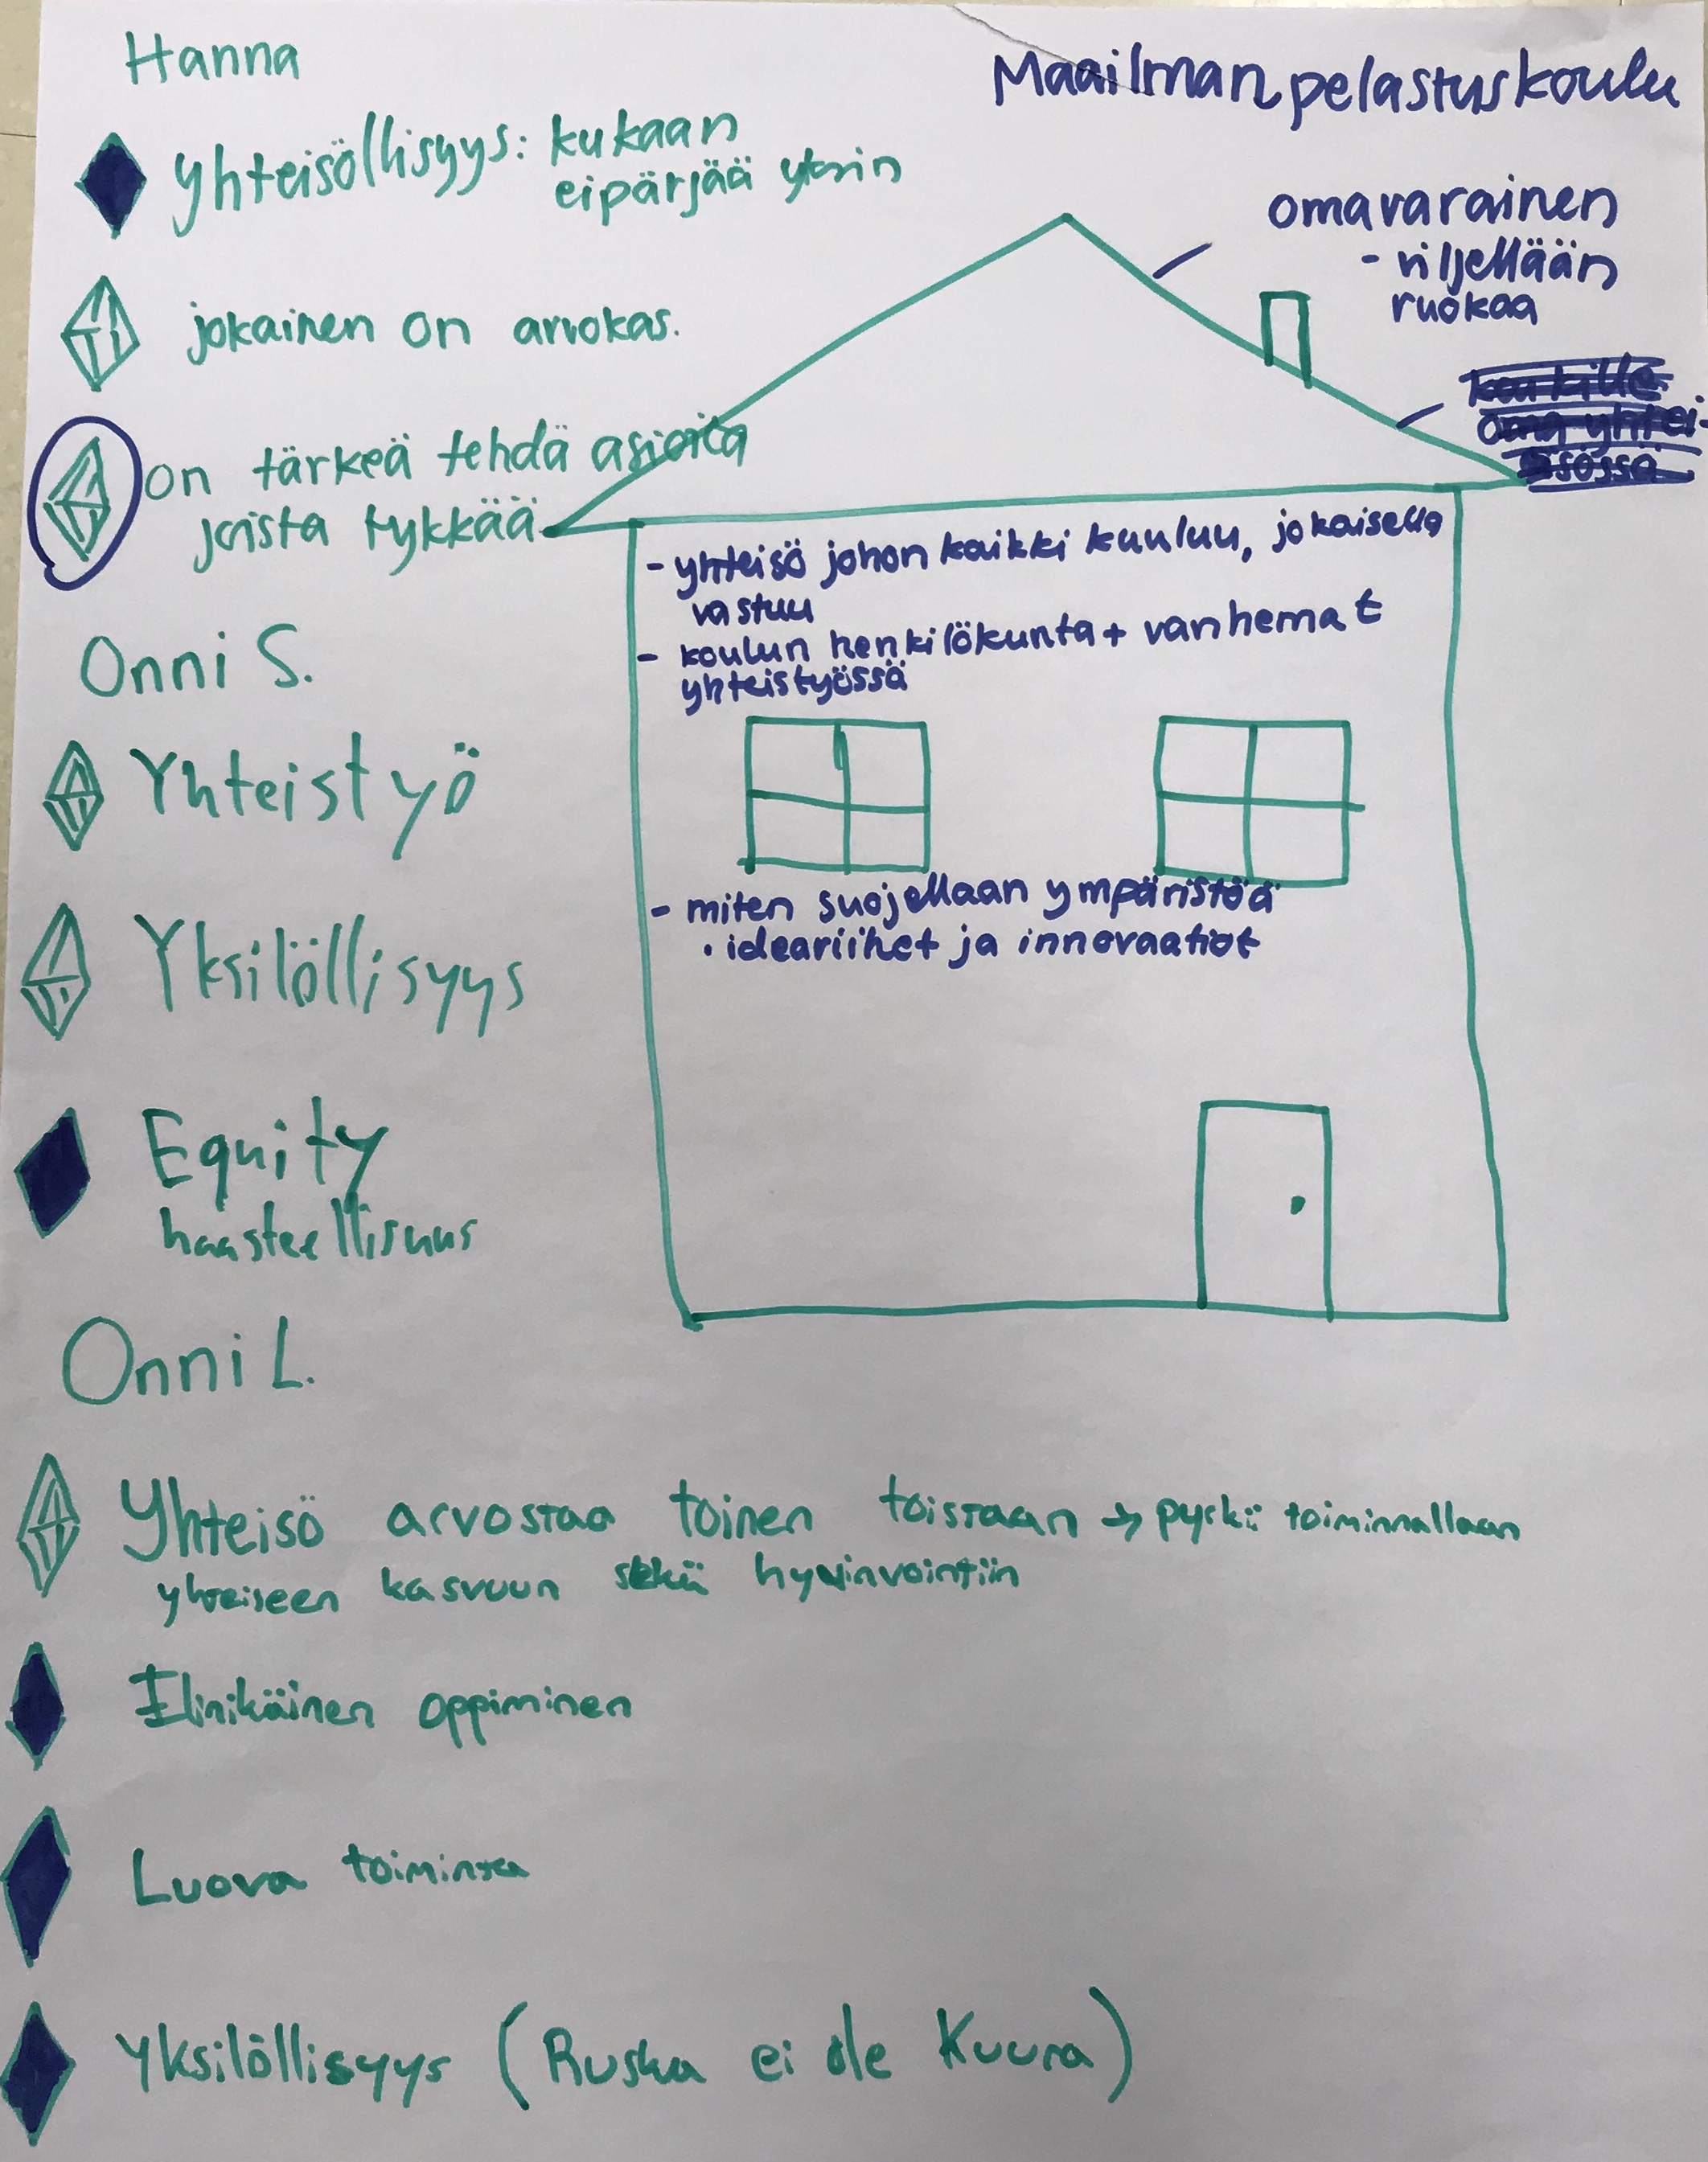 Hanna
yhteisöllisyys: kukaan
eipärjää yksin
jokainen on arvokas.
on tärkeä tehdä asioita
joista tykkää
Onni S.
Yhteistyö
Yksilöllisyys
Equity
haasteellisuus
Onni L.
Yhteisö arvostaa toinen toistaan → pyrkii toiminnallaan
yhteiseen kasvuun sekä hyvinvointiin
Elinikäinen oppiminen
Luova toiminta
Yksilöllisyys (Ruska ei ole Kuura)
Maailman pelastuskoulu
omavarainen
- viljellään
ruokaa
kaikille
oma yhtei-
sössä
- yhteisö johon kaikki kuuluu, jokaisella
vastuu
- koulun henkilökunta + vanhemat
yhteistyössä
- miten suojellaan ympäristöä
• ideariihet ja innovaatiot